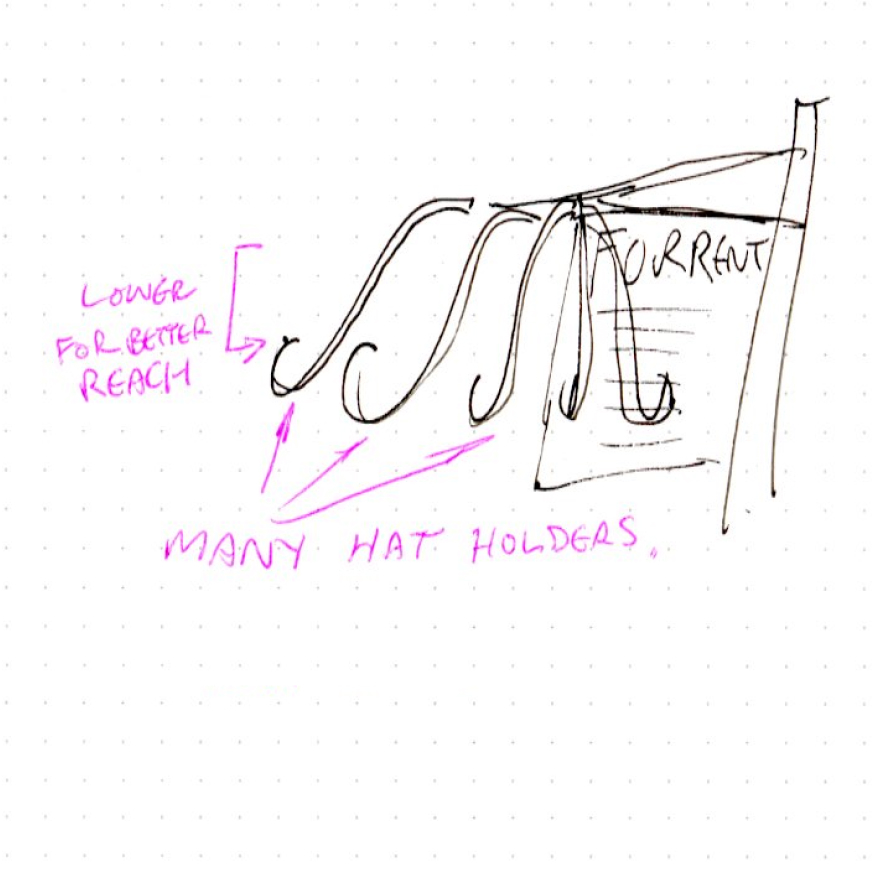 FOR RENT
LOWER
FOR BETTER
REACH
MANY HAT HOLDERS.